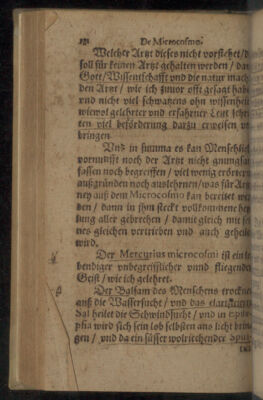 De Microcosmo.
Welcher Artzt dieses nicht vorstehet/
soll für keinen Artzt gehalten werden/ dan
Gott/ Wissenschafft vnd die natur mach
den Artzt/ wie ich zuuor offt gesagt habe
vnd nicht viel schwatzens ohn wissenheit
wiewol gelehrter vnd erfahrner Leut schri
ten viel beförderung darzu erweisen vn
bringen.
Vnd in summa es kan Menschlich
vornunfft noch der Artzt nicht gnungsam
fassen noch begreiffen/ viel wenig erörtern
außgründen noch auslehrnen/ was für Artz
ney auß dem Microcosmo kan bereitet wer
den/ dann in jhm steckt vollkommene hey
lung aller gebrechen/ damit gleich mit sei
nes gleichen vertrieben vnd auch geheilet
wird.
Der Mercurius microcosmi ist ein le
bendiger vnbegreifflicher vnnd fliegender
Geist/ wie ich gelehret.
Der Balsam des Menschens trocknet
auß die Wassersucht/ vnd das
Sal heilet die Schwindsucht/ vnd in
wird sich sein lob selbsten ans licht brin
gen/ vnd da ein süsser wolriechender